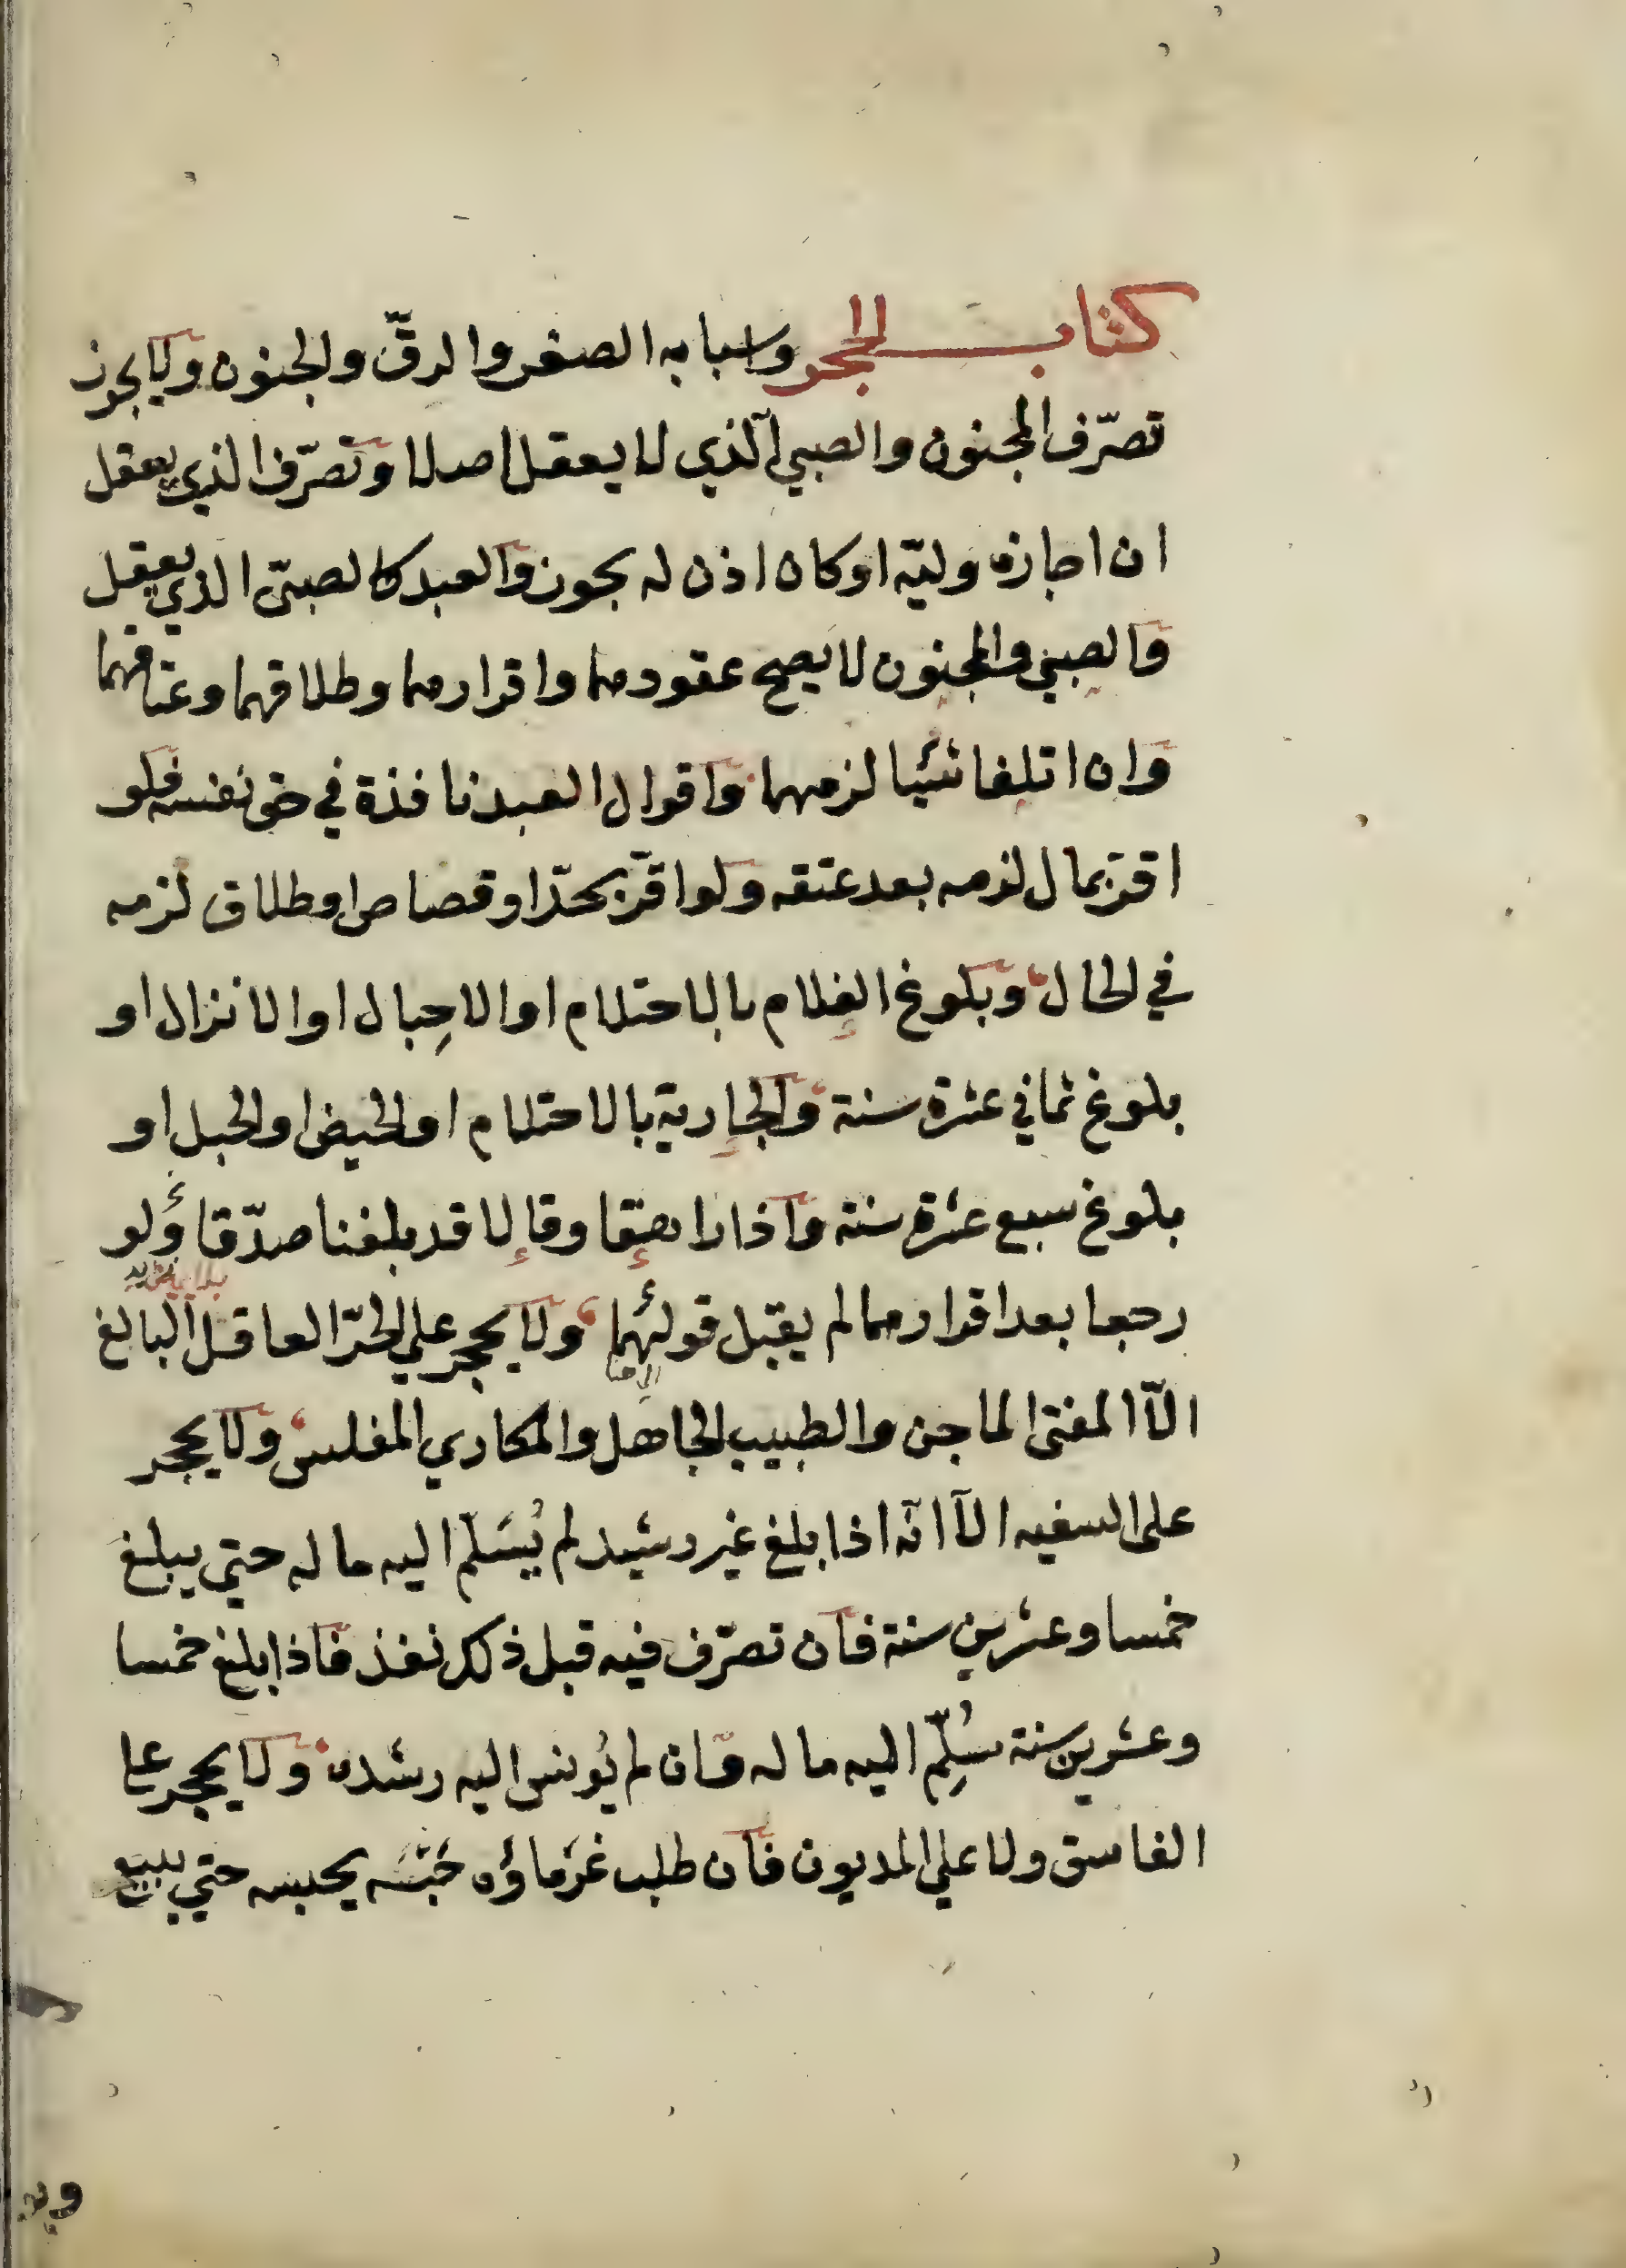 كتاب الحجر واسبابه الصغر والرقّ والجنون ولا يجوز
تصرّف المجنون والصبي الذي لا يعقل اصلا وتصرّف الذي يعقل
ان اجازه وليّه او كان اذن له يجوز والعبد كالصبيّ الذي يعقل
والصبي والمجنون لا يصح عقودهما واقرارهما وطلاقهما وعتاقهما
وان اتلفا شيئا لزمهما واقوال العبد نافذة في حق نفسه فلو
اقرّ بمال لزمه بعد عتقه ولو اقرّ بحدّ او قصاص او طلاق لزمه
في الحال وبلوغ الغلام بالاحتلام او الاحبال او الانزال او
بلوغ ثماني عشرة سنة والجارية بالاحتلام او الحيض او الحبل او
بلوغ سبع عشرة سنة واذا راهقا وقالا قد بلغنا صدّقا ولو
رجعا بعد اقرارهما لم يقبل قولهما ولا يحجر على الحرّ العاقل البالغ
الّا المفتى الماجن والطبيب الجاهل والمكاري المفلس ولا يحجر
على السفيه الّا انّه اذا بلغ غير رشيد لم يُسَلّم اليه ماله حتي يبلغ
خمسا وعشرين سنة فان تصرّف فيه قبل ذلك نفذ فاذا بلغ خمسا
وعشرين سنة سُلِّم اليه ماله وان لم يُونس اليه رشده ولا يحجر على
الفاسق ولا علي المديون فان طلب غرماؤه حَبْسَه يحبسه حتي يبيع